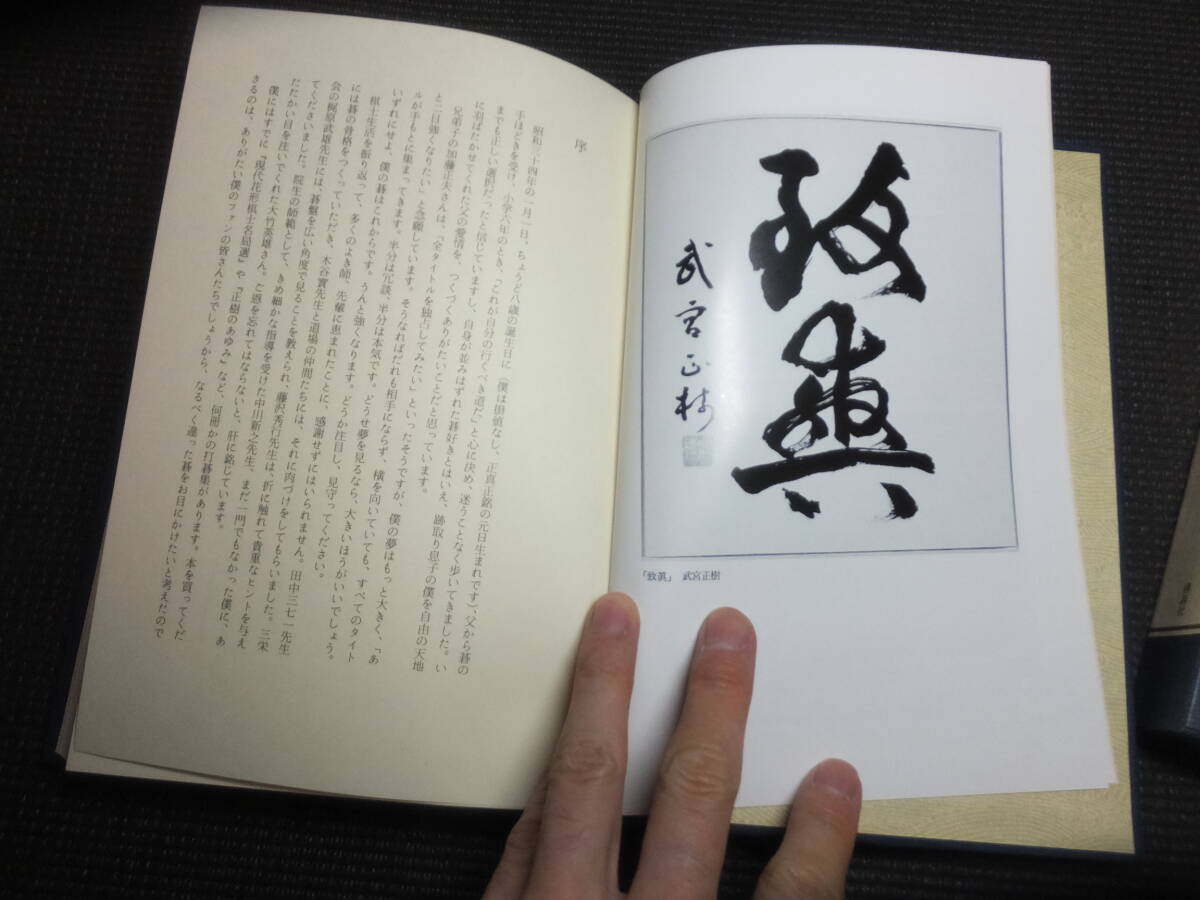 致眞
武宮正樹
「致眞」 武宮正樹
序
昭和三十四年の一月一日、ちょうど八歳の誕生日に(僕は掛値なし、正真正銘の元日生まれです)、父から碁の
手ほどきを受け、小学六年のとき、「これが自分の行くべき道だ」と心に決め、迷うことなく歩いてきました。い
までも正しい選択だったと信じていますし、自身が並みはずれた碁好きとはいえ、跡取り息子の僕を自由の天地
に羽ばたかせてくれた父の愛情を、つくづくありがたいことだと思っています。
兄弟子の加藤正夫さんは、「全タイトルを独占してみたい」といったそうですが、僕の夢はもっと大きく、「あ
と二目強くなりたい」と念願しています。そうなればだれも相手にならず、横を向いていても、すべてのタイト
ルが手もとに集まってきます。半分は冗談、半分は本気です。どうせ夢を見るなら、大きいほうがいいでしょう。
いずれにせよ、僕の碁はこれからです。うんと強くなります。どうか注目し、見守ってください。
棋士生活を振り返って、多くのよき師、先輩に恵まれたことに、感謝せずにはいられません。田中三七一先生
には碁の骨格をつくっていただき、木谷實先生と道場の仲間たちには、それに肉づけをしてもらいました。三栄
会の梶原武雄先生には、碁盤を広い角度で見ることを教えられ、藤沢秀行先生は、折に触れて貴重なヒントを与え
てくださいました。院生の師範として、きめ細かな指導を受けた中川新之先生、まだ一門でもなかった僕に、あ
たたかい目を注いでくれた大竹英雄さん。ご恩を忘れてはならないと、肝に銘じています。
僕にはすでに『現代花形棋士名局選』や『正樹のあゆみ』など、何冊かの打碁集があります。本を買ってくだ
さるのは、ありがたい僕のファンの皆さんたちでしょうから、なるべく違った碁をお目にかけたいと考えたので